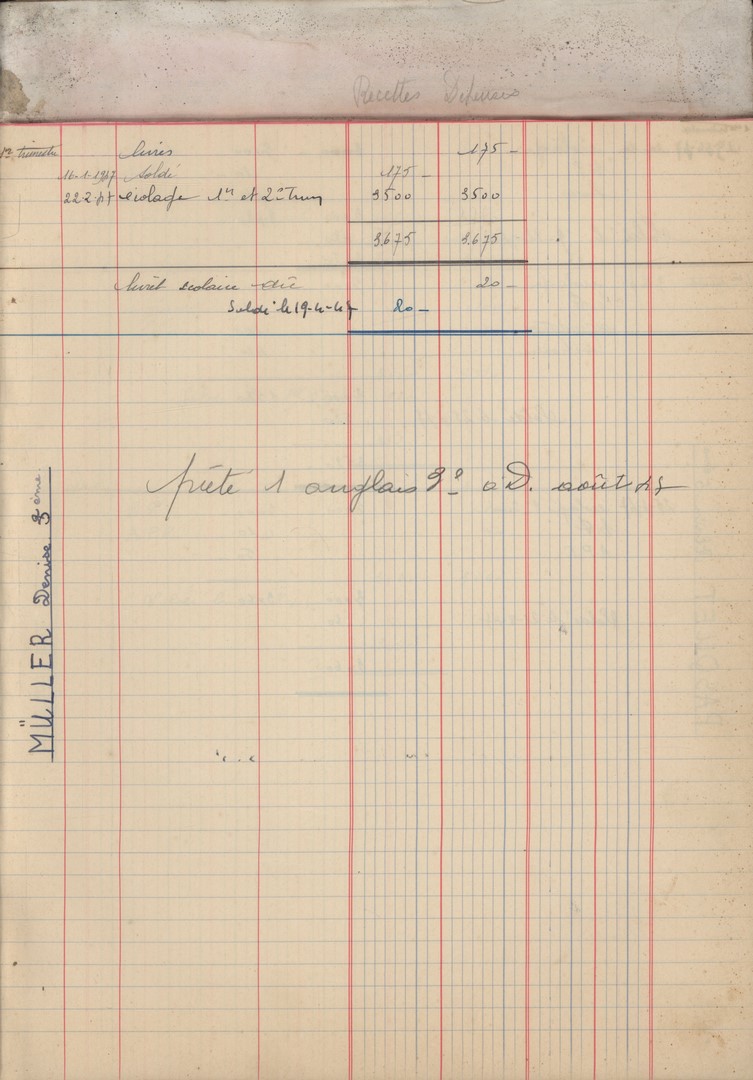 Recettes Dépenses
1er trimestre livres 175 -
16-1-1947 soldé 175 -
22-2-47 écolage 1er et 2e Trim 3500 3500
3.675 3.675
livret scolaire dû 20 -
Soldé le 19-4-47 20 -
prête 1 anglais 3e a D. août 47
MÜLLER Denise 3ème